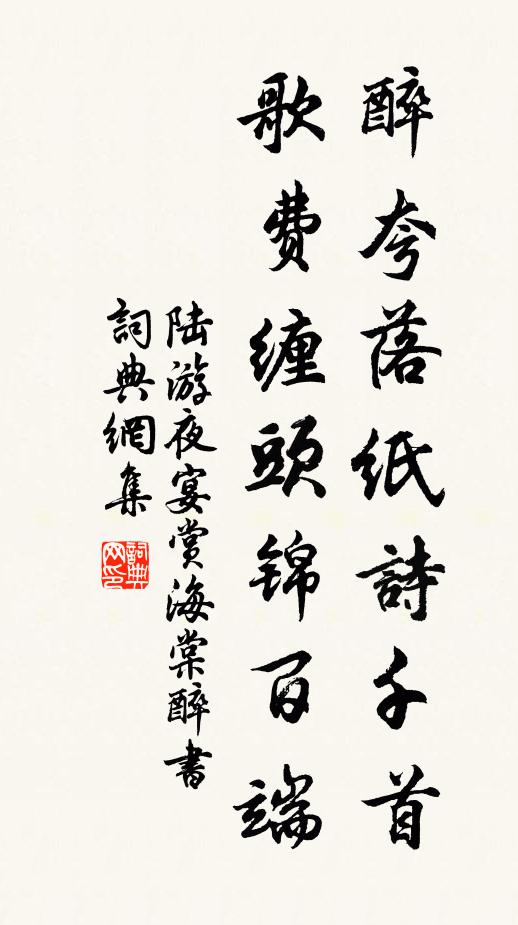 醉夸落紙詩千首
歌費纏頭錦百端
陆游夜宴赏海棠醉書
詞典網集
詞典网印